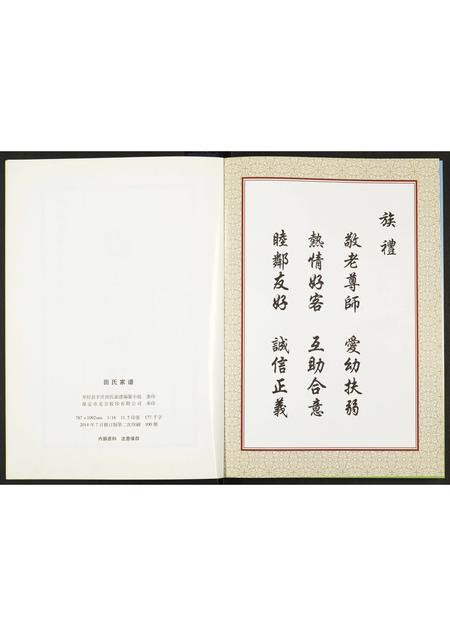 族禮
敬老尊師 愛幼扶弱
熱情好客 互助合意
睦鄰友好 誠信正義
田氏家谱
787×1092mm 1/16 11.5印张 177千字
2014年7月修订版第二次印刷 100册
内部资料 注意保存